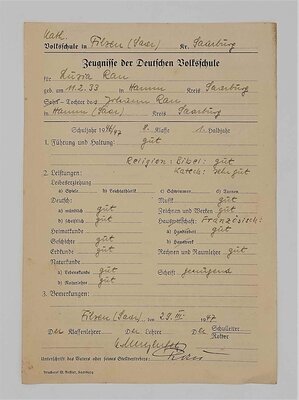 Kath.
Volksschule in Filzen (Saar) Kr. Saarburg
Zeugnisse der Deutschen Volksschule
für Luzia Rau
geb. am 11.2.33 in Hamm Kreis Saarburg
Sohn - Tochter des Johann Rau
in Hamm (Saar) Kreis Saarburg
Schuljahr 1946/47 8. Klasse 1. Halbjahr
1. Führung und Haltung: gut
Religion: Bibel: gut
2. Leistungen: Katech: sehr gut
Leibeserziehung
a) Spiele b) Leichtathletik c) Schwimmen d) Turnen
Deutsch: gut Musik gut
a) mündlich gut Zeichnen und Werken gut
b) schriftlich gut Hauswirtschaft Französisch:
Heimatkunde a) Handarbeit gut
Geschichte gut b) Hauswerk
Erdkunde gut Rechnen und Raumlehre gut
Naturkunde
a) Lebenskunde gut Schrift genügend
b) Naturlehre gut
3. Bemerkungen:
Filzen (Saar), den 29. III. 1947
Der Klassenlehrer Der Lehrer Der Schulleiter
Rektor
Unterschrift des Vaters oder seines Stellvertreters:
Saarburg